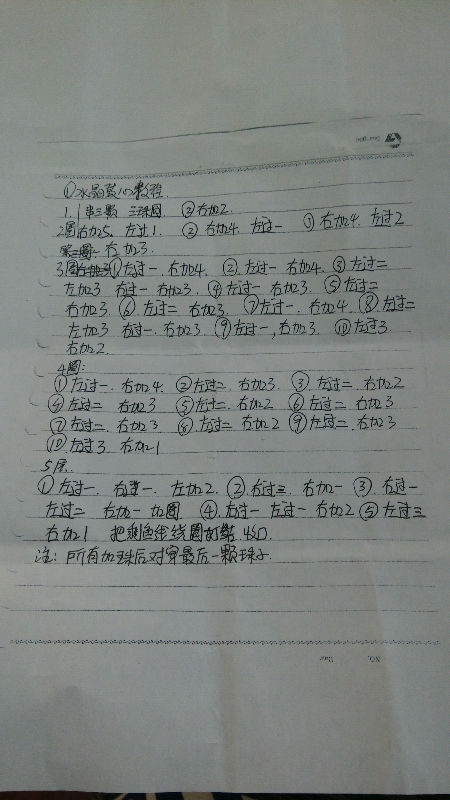 ①水晶爱心教程.
1. 1串三颗 三珠圆. ②右加2.
2圆右加5. 左过1. ② 右加4. 左过一 ③ 右加4. 左过2
右加3.
3圆 ①左过一. 右加4. ②左过一 右加4. ③左过二
左加3 右过一 右加3. ④左过一 右加3. ⑤左过二
右加3. ⑥左过二 右加3. ⑦左过一. 右加4. ⑧左过二
左加3 右过一. 右加3. ⑨左过一, 右加3. ⑩左过3.
右加2.
4圆:
①左过一. 右加4. ②左过二. 右加3. ③左过二. 右加2
④左过二 右加3 ⑤左过二. 右加2 ⑥左过二 右加3
⑦左过二. 右加3 ⑧左过二 右加2 ⑨左过二. 右加3
⑩左过3 右加1
5层.
①左过一. 右过一. 左加2. ②右过三 右加一 ③右过一
左过二 右加一 加圆 ④左过一 左过一 右加2 ⑤左过三
右加1 把剩鱼线 圆打 收口.
注: 所有加珠后对穿最后一颗珠子.